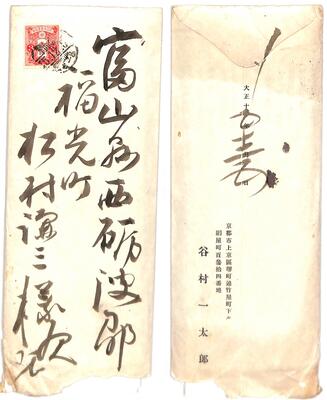 富山縣西礪波郡
福光町
松村謙三様
大正十
京都市上京區堺町通竹屋町下ル
絹屋町百参拾四番地
谷村一太郎